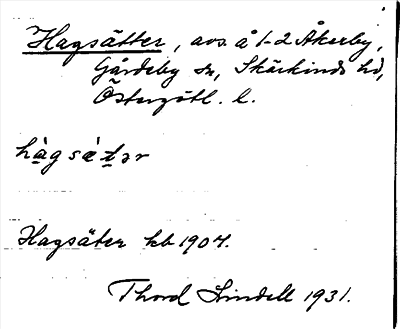 Hagsätter, avs. å 1-2 Åkerby,
Gårdeby sn, Skärkinds hd,
Östergötl. l.
hàgsǽtər
Hagsäter kb 1904.
Thord Lindell 1931.